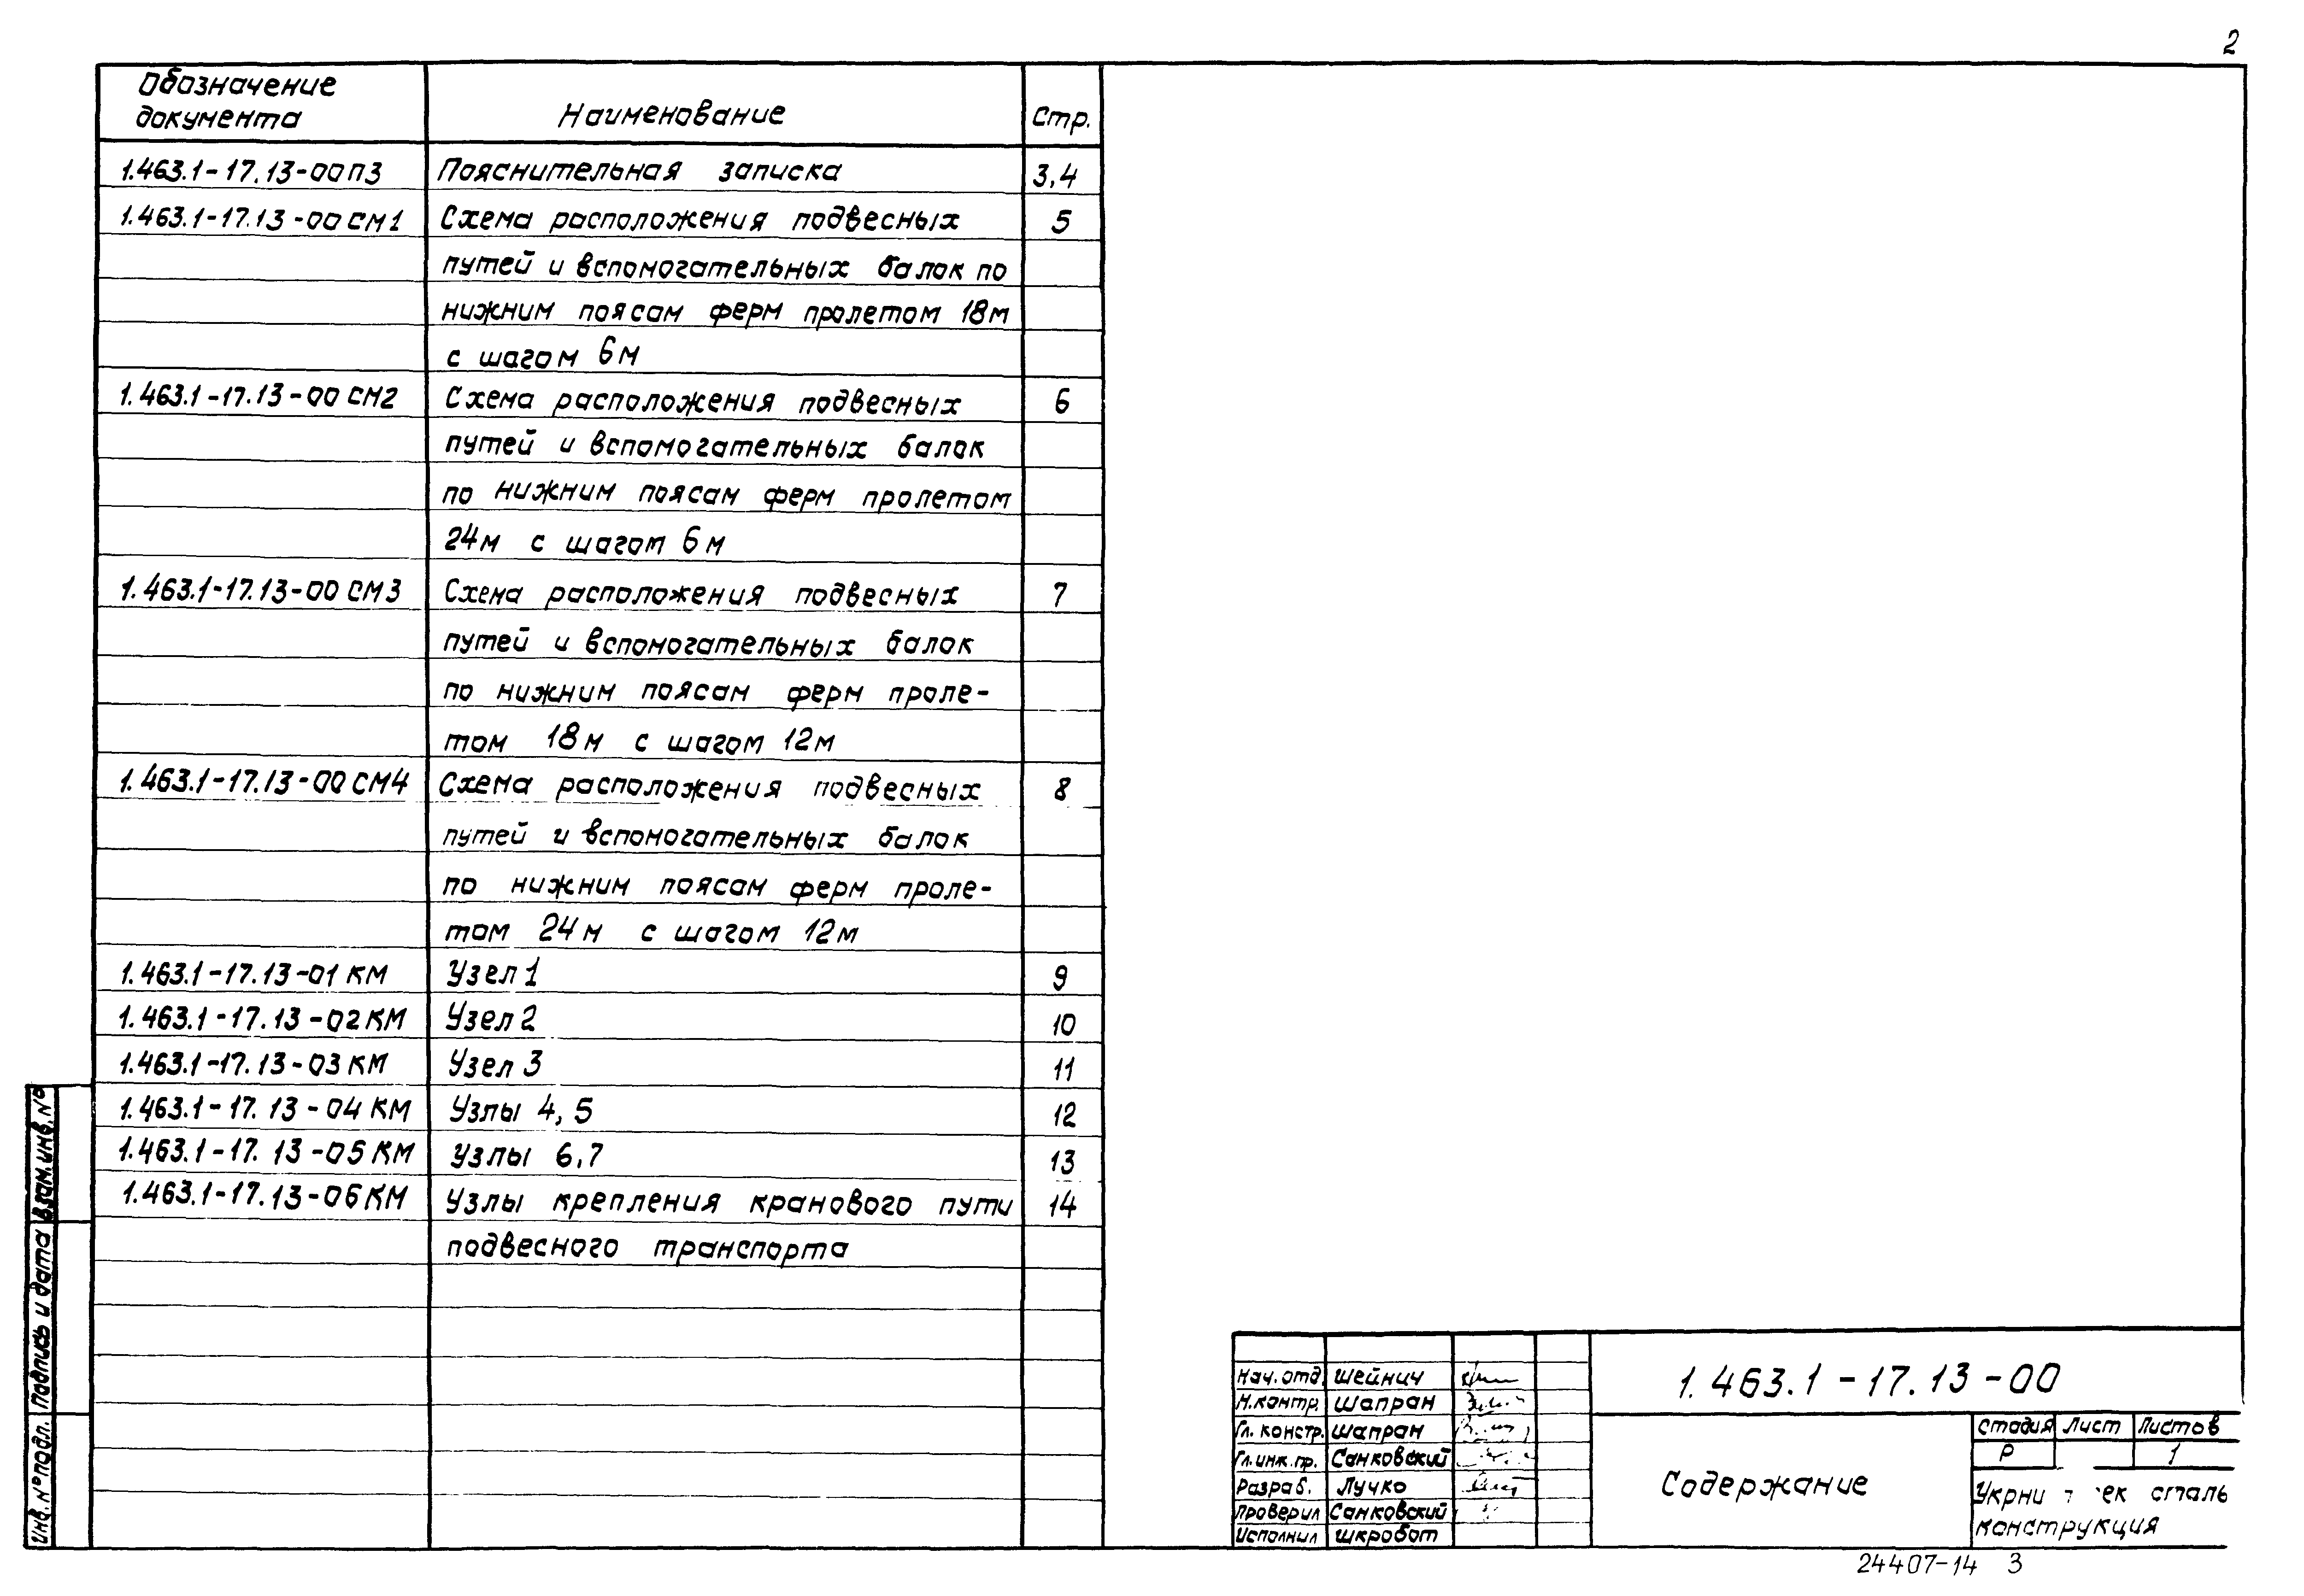 2
Обозначение документа Наименование Стр.
1.463.1-17.13-00ПЗ Пояснительная записка 3,4
1.463.1-17.13-00СМ1 Схема расположения подвесных 5
путей и вспомогательных балок по
нижним поясам ферм пролетом 18м
с шагом 6м
1.463.1-17.13-00СМ2 Схема расположения подвесных 6
путей и вспомогательных балок
по нижним поясам ферм пролетом
24м с шагом 6м
1.463.1-17.13-00СМ3 Схема расположения подвесных 7
путей и вспомогательных балок
по нижним поясам ферм проле-
том 18м с шагом 12м
1.463.1-17.13-00СМ4 Схема расположения подвесных 8
путей и вспомогательных балок
по нижним поясам ферм проле-
том 24м с шагом 12м
1.463.1-17.13-01КМ Узел 1 9
1.463.1-17.13-02КМ Узел 2 10
1.463.1-17.13-03КМ Узел 3 11
1.463.1-17.13-04КМ Узлы 4, 5 12
1.463.1-17.13-05КМ Узлы 6,7 13
1.463.1-17.13-06КМ Узлы крепления кранового пути 14
подвесного транспорта
Взам.инв.№
Подпись и дата
Инв.№подл.
Нач.отд. Шейнич
Н.контр. Шапран
Гл. констр. Шапран
Гл.инж.пр. Санковский
Разраб. Лучко
Проверил Санковский
Исполнил Шкробот
1.463.1-17.13-00
Содержание
Стадия Лист Листов
Р 1
сталь
конструкция
24407-14 3